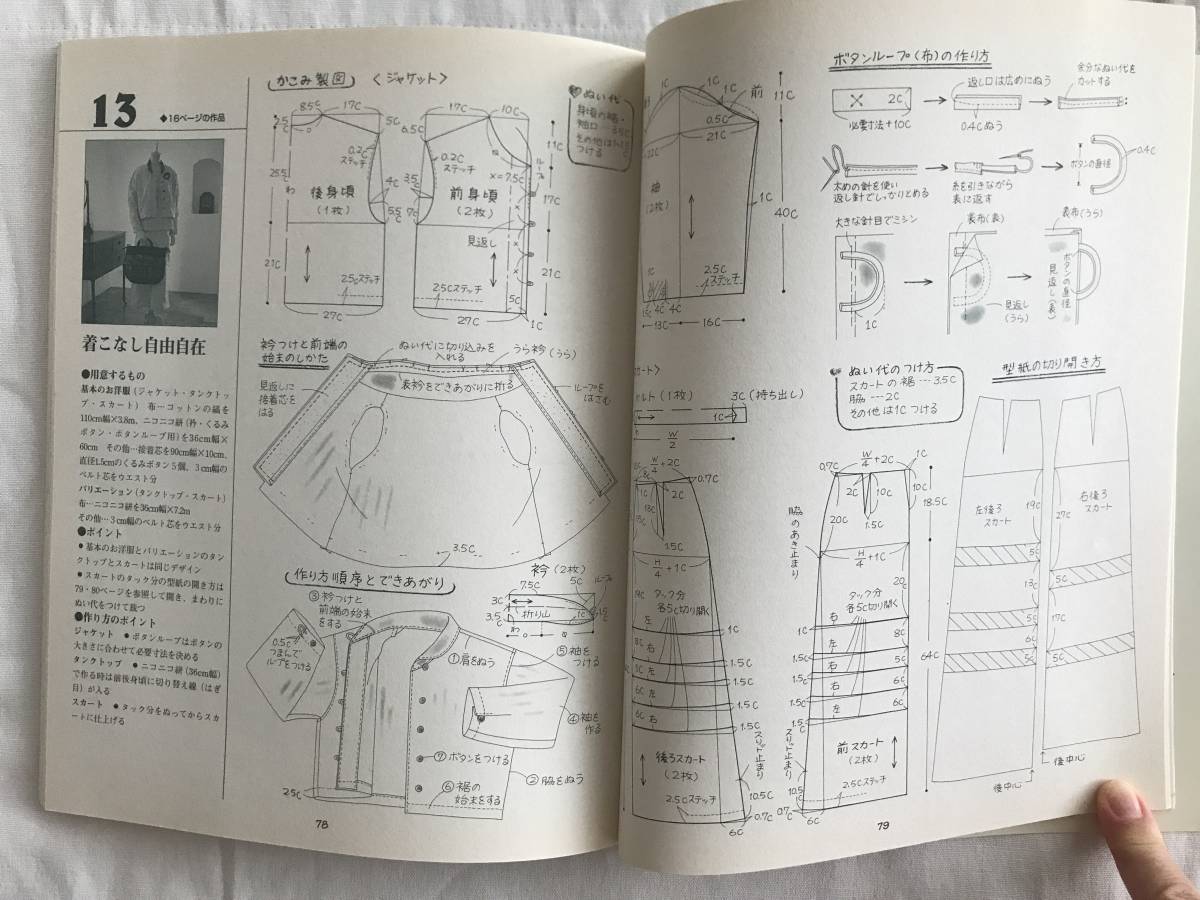 13
◆16ページの作品
着こなし自由自在
●用意するもの
基本のお洋服(ジャケット・タンクトッ
プ・スカート) 布…コットンの縞を
110cm幅×3.8m、ニコニコ絣(衿・くるみ
ボタン・ボタンループ用)を36cm幅×
60cm その他…接着芯を90cm幅×10cm、
直径1.5cmのくるみボタン5個、3cm幅の
ベルト芯をウエスト分
バリエーション(タンクトップ・スカート)
布…ニコニコ絣を36cm幅×7.2m
その他…3cm幅のベルト芯をウエスト分
●ポイント
●基本のお洋服とバリエーションのタン
クトップとスカートは同じデザイン
●スカートのタック分の型紙の開き方は
79・80ページを参照して開き、まわりに
ぬい代をつけて裁つ
●作り方のポイント
ジャケット ●ボタンループはボタンの
大きさに合わせて必要寸法を決める
タンクトップ ●ニコニコ絣(36cm幅)
で作る時は前後身頃に切り替え線(はぎ
目)が入る
スカート ●タック分をぬってからスカ
ートに仕上げる
かこみ製図 〈ジャケット〉
ぬい代
身頃の裾・
袖口…3.5C
その他は1C
つける
8.5C
17C
17C
10C
5C
6.5C
11C
0.2C
ステッチ
0.2C
ステッチ
ループ
x=7.5C
25.5C
わ
後身頃
(1枚)
4C
5.5C
3.5C
7C
前身頃
(2枚)
17C
見返し
21C
21C
2.5Cステッチ
2.5Cステッチ
5C
27C
27C
1C
衿つけと前端の
始末のしかた
ぬい代に切り込みを
入れる
うら衿(うら)
見返しに
接着芯を
はる
表衿をできあがりに折る
ループを
はさむ
3.5C
作り方順序とできあがり
衿(2枚)
7.5C
5C
ループ
3C
3.5C
折り山
わ
③衿つけと
前端の始末
をする
0.5C
つまんで
ループをつける
①肩をぬう
⑤袖を
つける
④袖を
作る
⑦ボタンをつける
②脇をぬう
⑥裾の
始末をする
2.5C
78
1C
1C
1C
前
11C
0.5C
21C
袖
(2枚)
1C
40C
2.5C
ステッチ
4C
4C
13C
16C
ボタンループ(布)の作り方
2C
必要寸法+10C
返し口は広めにぬう
0.4Cぬう
余分なぬい代を
カットする
木めの針を使い
返し針でしっかりとめる
糸を引きながら
表に返す
ボタンの直径
0.4C
大きな針目でミシン
1C
表布(表)
見返し
(うら)
表布(うら)
ボタンの直径
見返し(表)
ルト(1枚)
3C(持ち出し)
1C
W/2
ぬい代のつけ方
スカートの裾…3.5C
脇…2C
その他は1Cつける
型紙の切り開き方
W/4+2C
0.7C
1C
2C
13C
1.5C
H/4+1C
タック分
各5C切り開く
左
1C
8C
右
1.5C
5C
左
1.5C
6C
左
1.5C
6C
右
1.5C
スリット止まり
後ろスカート
(2枚)
2.5Cステッチ
10.5C
1C
0.7C
6C
脇のあき止まり
W/4+2C
0.7C
1C
2C
10C
10C
20C
1.5C
18.5C
H/4+1C
20C
タック分
各5C切り開く
1C
右
8C
1.5C
左
5C
1.5C
右
6C
1.5C
左
6C
64C
スリット止まり
前スカート
(2枚)
2.5Cステッチ
10.5C
1C
0.7C
6C
左後ろ
スカート
19C
5C
13C
5C
6C
5C
6C
5C
右後ろ
スカート
27C
5C
17C
5C
後中心
後中心
79